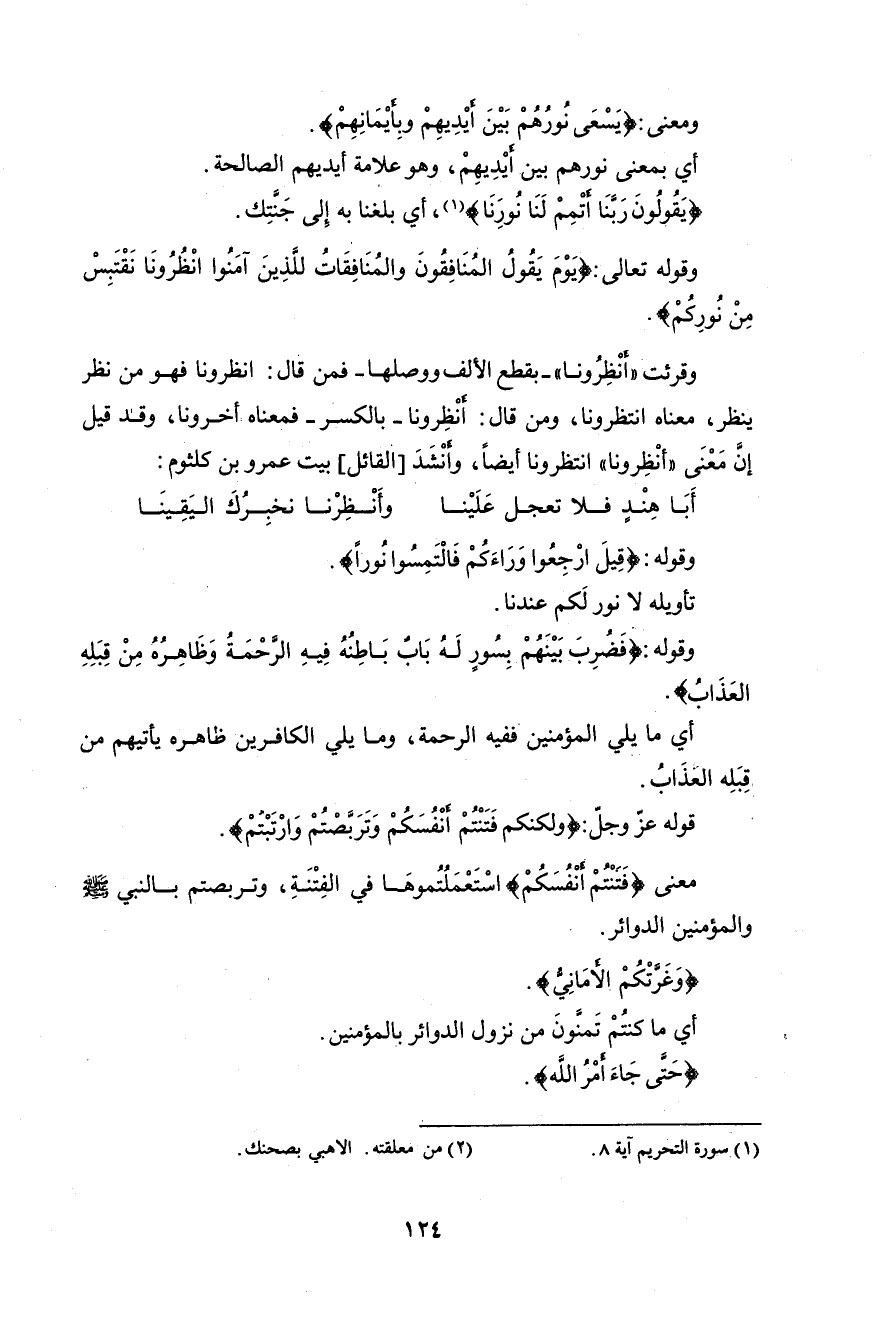 ومعنى: ﴿يَسْعَى نُورُهُمْ بَيْنَ أَيْدِيهِمْ وبِأَيْمَانِهِمْ﴾.
أي بمعنى نورهم بين أَيْدِيهِمْ، وهو علامة أيديهم الصالحة.
﴿يَقُولُونَ رَبَّنَا أَتْمِمْ لَنَا نُورَنَا﴾(١)، أي بلغنا به إِلى جَنَّتِك.
وقوله تعالى: ﴿يَوْمَ يَقُولُ المُنَافِقُونَ والمُنَافِقَاتُ للَّذِينَ آمَنُوا انْظُرُونَا نَقْتَبِسْ
مِنْ نُورِكُمْ﴾.
وقرئت «أَنْظِرُونا» ـ بقطع الألف ووصلها ـ فمن قال: انظرونا فهو من نظر
ينظر، معناه انتظرونا، ومن قال: أَنْظِرونا ـ بالكسر ـ فمعناه أخرونا، وقد قيل
إِنَّ مَعْنَى «أَنْظِرونا» انتظرونا أيضاً، وأَنْشَدَ [القائل] بيت عمرو بن كلثوم:
أَبَا هِنْدٍ فلا تعجل عَلَيْنا وأَنْظِرْنا نخبِركَ اليَقِينَا
وقوله: ﴿قِيلَ ارْجِعُوا وَرَاءَكُمْ فَالْتَمِسُوا نُوراً﴾.
تأويله لا نور لَكم عندنا.
وقوله: ﴿فَضُرِبَ بَيْنَهُمْ بِسُورٍ لَهُ بَابٌ بَاطِنُهُ فِيهِ الرَّحْمَةُ وَظَاهِرُهُ مِنْ قِبَلِهِ
العَذَابُ﴾.
أي ما يلي المؤمنين ففيه الرحمة، وما يلي الكافرين ظاهره يأتيهم من
قِبَلِه العَذَابُ.
قوله عزّ وجلّ: ﴿ولكنكم فَتَنْتُمْ أَنْفُسَكُمْ وَتَرَبَّصْتُمْ وَارْتَبْتُمْ﴾.
معنى ﴿فَتَنْتُمْ أَنْفُسَكُمْ﴾ اسْتَعْمَلْتُموهَا في الفِتْنَةِ، وتربصتم بالنبي ﷺ
والمؤمنين الدوائر.
﴿وَغَرَّتْكُمْ الأَمَانِيُّ﴾.
أي ما كنتُمْ تَمنَّونَ من نزول الدوائر بالمؤمنين.
﴿حَتَّى جَاءَ أَمْرُ اللَّه﴾.
(١) سورة التحريم آية ٨.
(٢) من معلقته. الاهبي بصحنك.
١٢٤